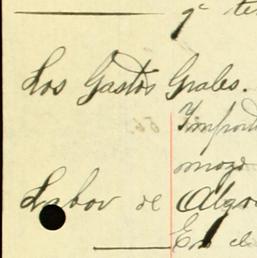 qe te
Los Gastos Grales.
Import
mozo
Lisbov de Algo
En el